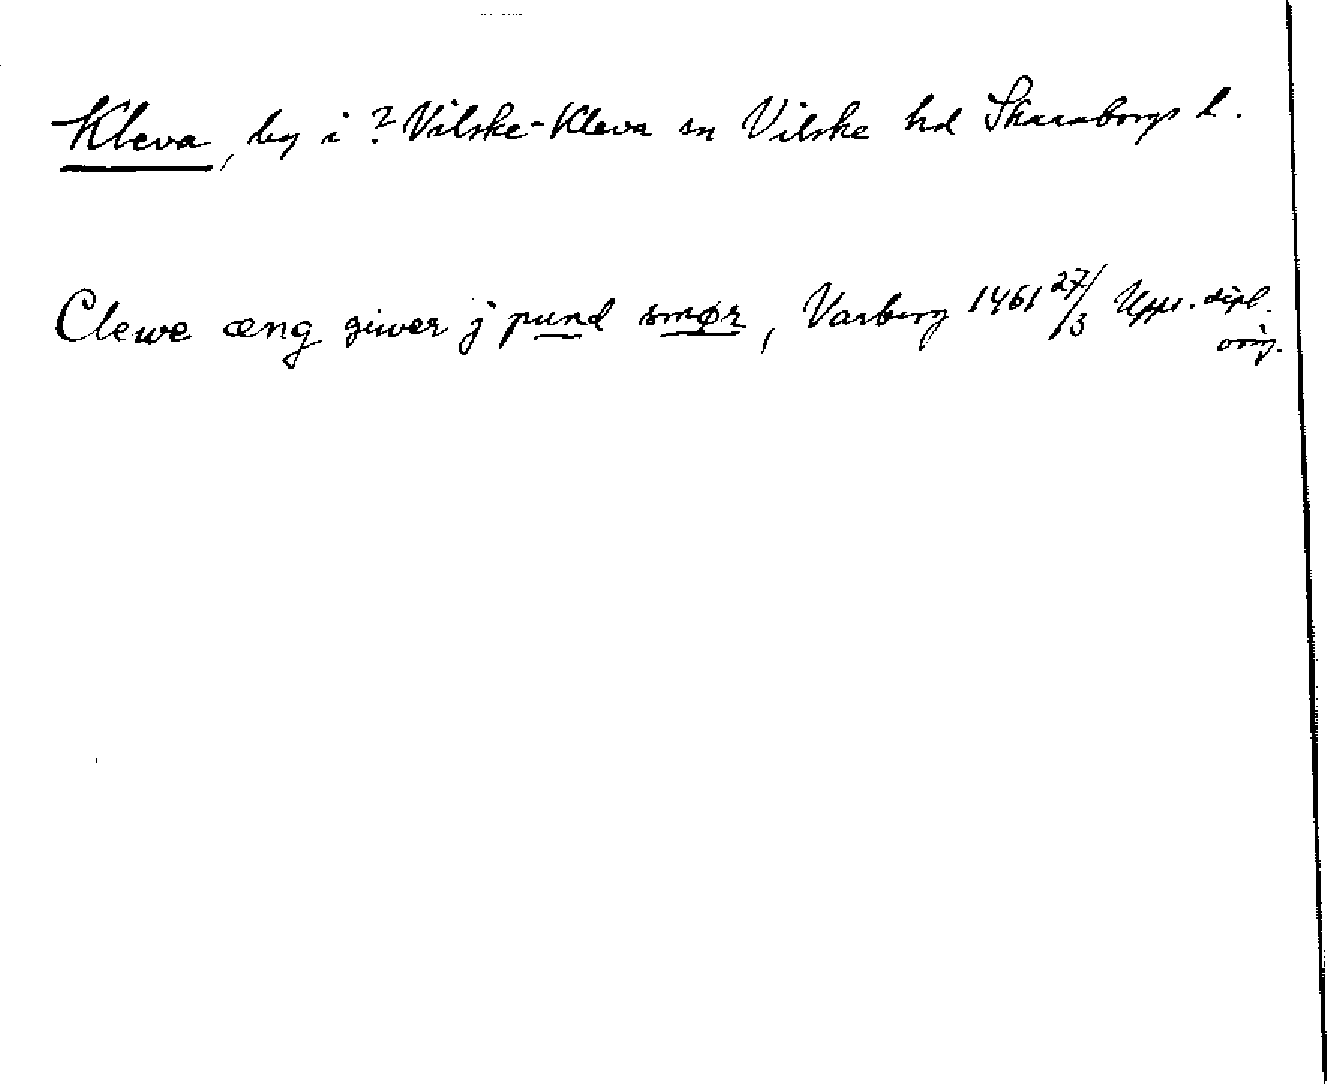 Kleva, by i ? Vilske-Kleva sn Vilske hd Skaraborgs l.
Clewe æng giwer j pund smør, Varberg 1461 27/3 Upps. dipl.
orig.